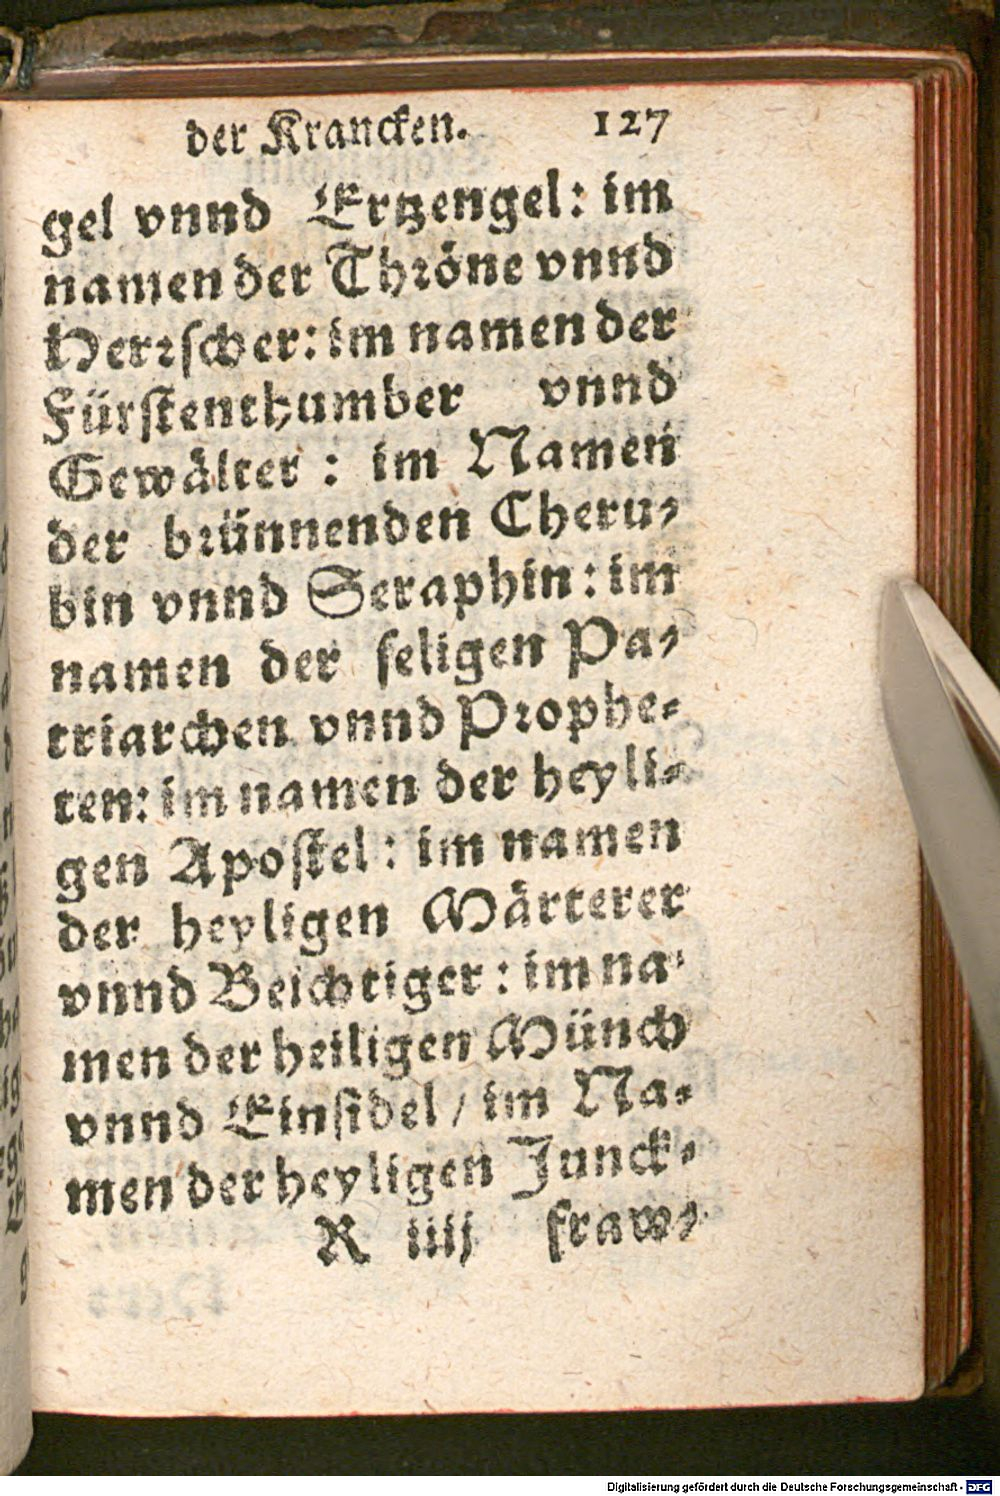 der Krancken. 127
gel vnnd Ertzengel: im
namen der Thröne vnnd
Herrscher: im namen der
Fürstenthumber vnnd
Gewälter: im Namen
der brünnenden Cheru-
bin vnnd Seraphin: im
namen der seligen Pa-
triarchen vnnd Prophe-
ten: im namen der heyli-
gen Apostel: im namen
der heyligen Märterer
vnnd Beichtiger: im na-
men der heiligen Münch
vnnd Einsidel / im Na-
men der heyligen Junck-
R iiij fraw-
Digitalisierung gefördert durch die Deutsche Forschungsgemeinschaft - DFG